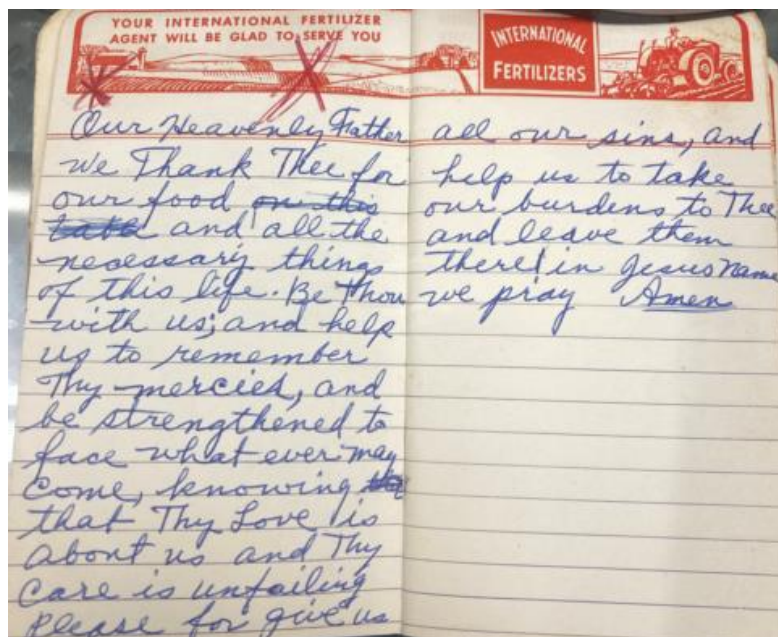 YOUR INTERNATIONAL FERTILIZER
AGENT WILL BE GLAD TO SERVE YOU
Our Heavenly Father
we Thank Thee for
our food on this
table and all the
necessary things
of this life. Be Thou
with us; and help
us to remember
Thy mercies, and
be strengthened to
face what ever may
come, knowing
that Thy Love is
about us and Thy
care is unfailing
Please for give us
INTERNATIONAL
FERTILIZERS
all our sins, and
help us to take
our burdens to Thee
and leave them
there! in Jesus name
we pray Amen